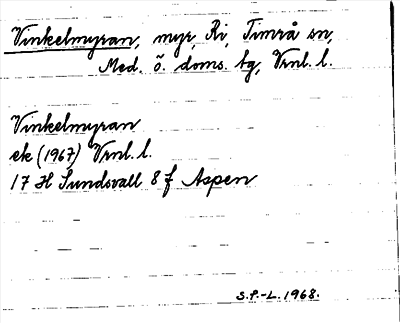 Vinkelmyran, myr, Ri, Timrå sn,
Med. ö. doms. tg, Vrnl. l.
Vinkelmyran
ek (1967) Vrnl. l.
17 H Sundsvall 8 f Aspen
S.P.-L. 1968.